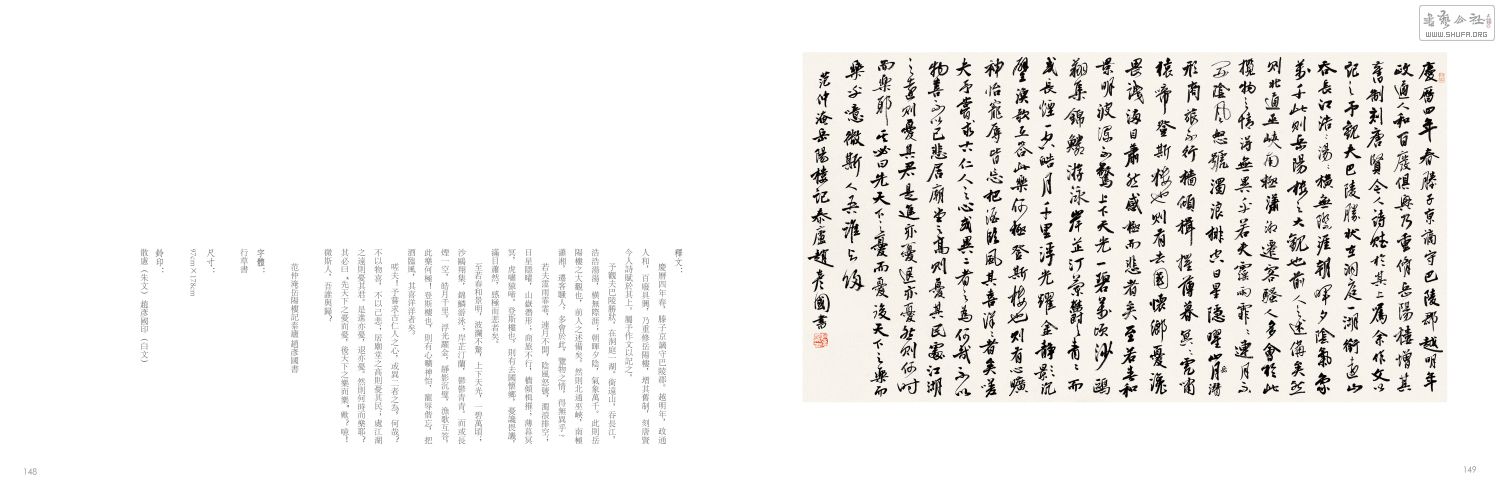 書藝公社
WWW.SHUFA.ORG
慶曆四年春滕子京謫守巴陵郡越明年
政通人和百廢俱興乃重脩岳陽樓增其
舊制刻唐賢今人詩賦於其上屬余作文以
記之予觀夫巴陵勝狀在洞庭一湖銜遠山
吞長江浩浩湯湯橫無際涯朝暉夕陰氣象
萬千此則岳陽樓之大觀也前人之述備矣然
則北通巫峽南極瀟湘遷客騷人多會於此
攬物之情得無異乎若夫霪雨霏霏連月不
開陰風怒號濁浪排空日星隱曜山岳潛
形商旅不行檣傾楫摧薄暮冥冥虎嘯
猿啼登斯樓也則有去國懷鄉憂讒
畏譏滿目蕭然感極而悲者矣至若春和
景明波瀾不驚上下天光一碧萬頃沙鷗
翔集錦鱗游泳岸芷汀蘭鬱鬱青青而
或長煙一空皓月千里浮光躍金靜影沉
璧漁歌互答此樂何極登斯樓也則有心曠
神怡寵辱皆忘把酒臨風其喜洋洋者矣嗟
夫予嘗求古仁人之心或異二者之為何哉不以
物喜不以己悲居廟堂之高則憂其民處江湖
之遠則憂其君是進亦憂退亦憂然則何時
而樂耶其必曰先天下之憂而憂後天下之樂而
樂乎噫微斯人吾誰與歸
范仲淹岳陽樓記泰廬趙彥國書
149
釋文：
慶曆四年春，滕子京謫守巴陵郡。越明年，政通
人和，百廢具興，乃重修岳陽樓，增其舊制，刻唐賢
今人詩賦於其上，屬予作文以記之。
予觀夫巴陵勝狀，在洞庭一湖。銜遠山，吞長江，
浩浩湯湯，橫無際涯，朝暉夕陰，氣象萬千。此則岳
陽樓之大觀也，前人之述備矣。然則北通巫峽，南極
瀟湘，遷客騷人，多會於此，覽物之情，得無異乎？
若夫霪雨霏霏，連月不開，陰風怒號，濁浪排空；
日星隱曜，山嶽潛形；商旅不行，檣傾楫摧；薄暮冥
冥，虎嘯猿啼。登斯樓也，則有去國懷鄉，憂讒畏譏，
滿目蕭然，感極而悲者矣。
至若春和景明，波瀾不驚，上下天光，一碧萬頃；
沙鷗翔集，錦鱗游泳，岸芷汀蘭，鬱鬱青青。而或長
煙一空，皓月千里，浮光躍金，靜影沉璧，漁歌互答，
此樂何極！登斯樓也，則有心曠神怡，寵辱偕忘，把
酒臨風，其喜洋洋者矣。
嗟夫！予嘗求古仁人之心，或異二者之為。何哉？
不以物喜，不以己悲；居廟堂之高則憂其民；處江湖
之遠則憂其君。是進亦憂，退亦憂。然則何時而樂耶？
其必曰“先天下之憂而憂，後天下之樂而樂”歟？噫！
微斯人，吾誰與歸？
范仲淹岳陽樓記泰廬趙彥國書
字體：
行草書
尺寸：
97cm×178cm
鈐印：
散廬（朱文） 趙彥國印（白文）
148